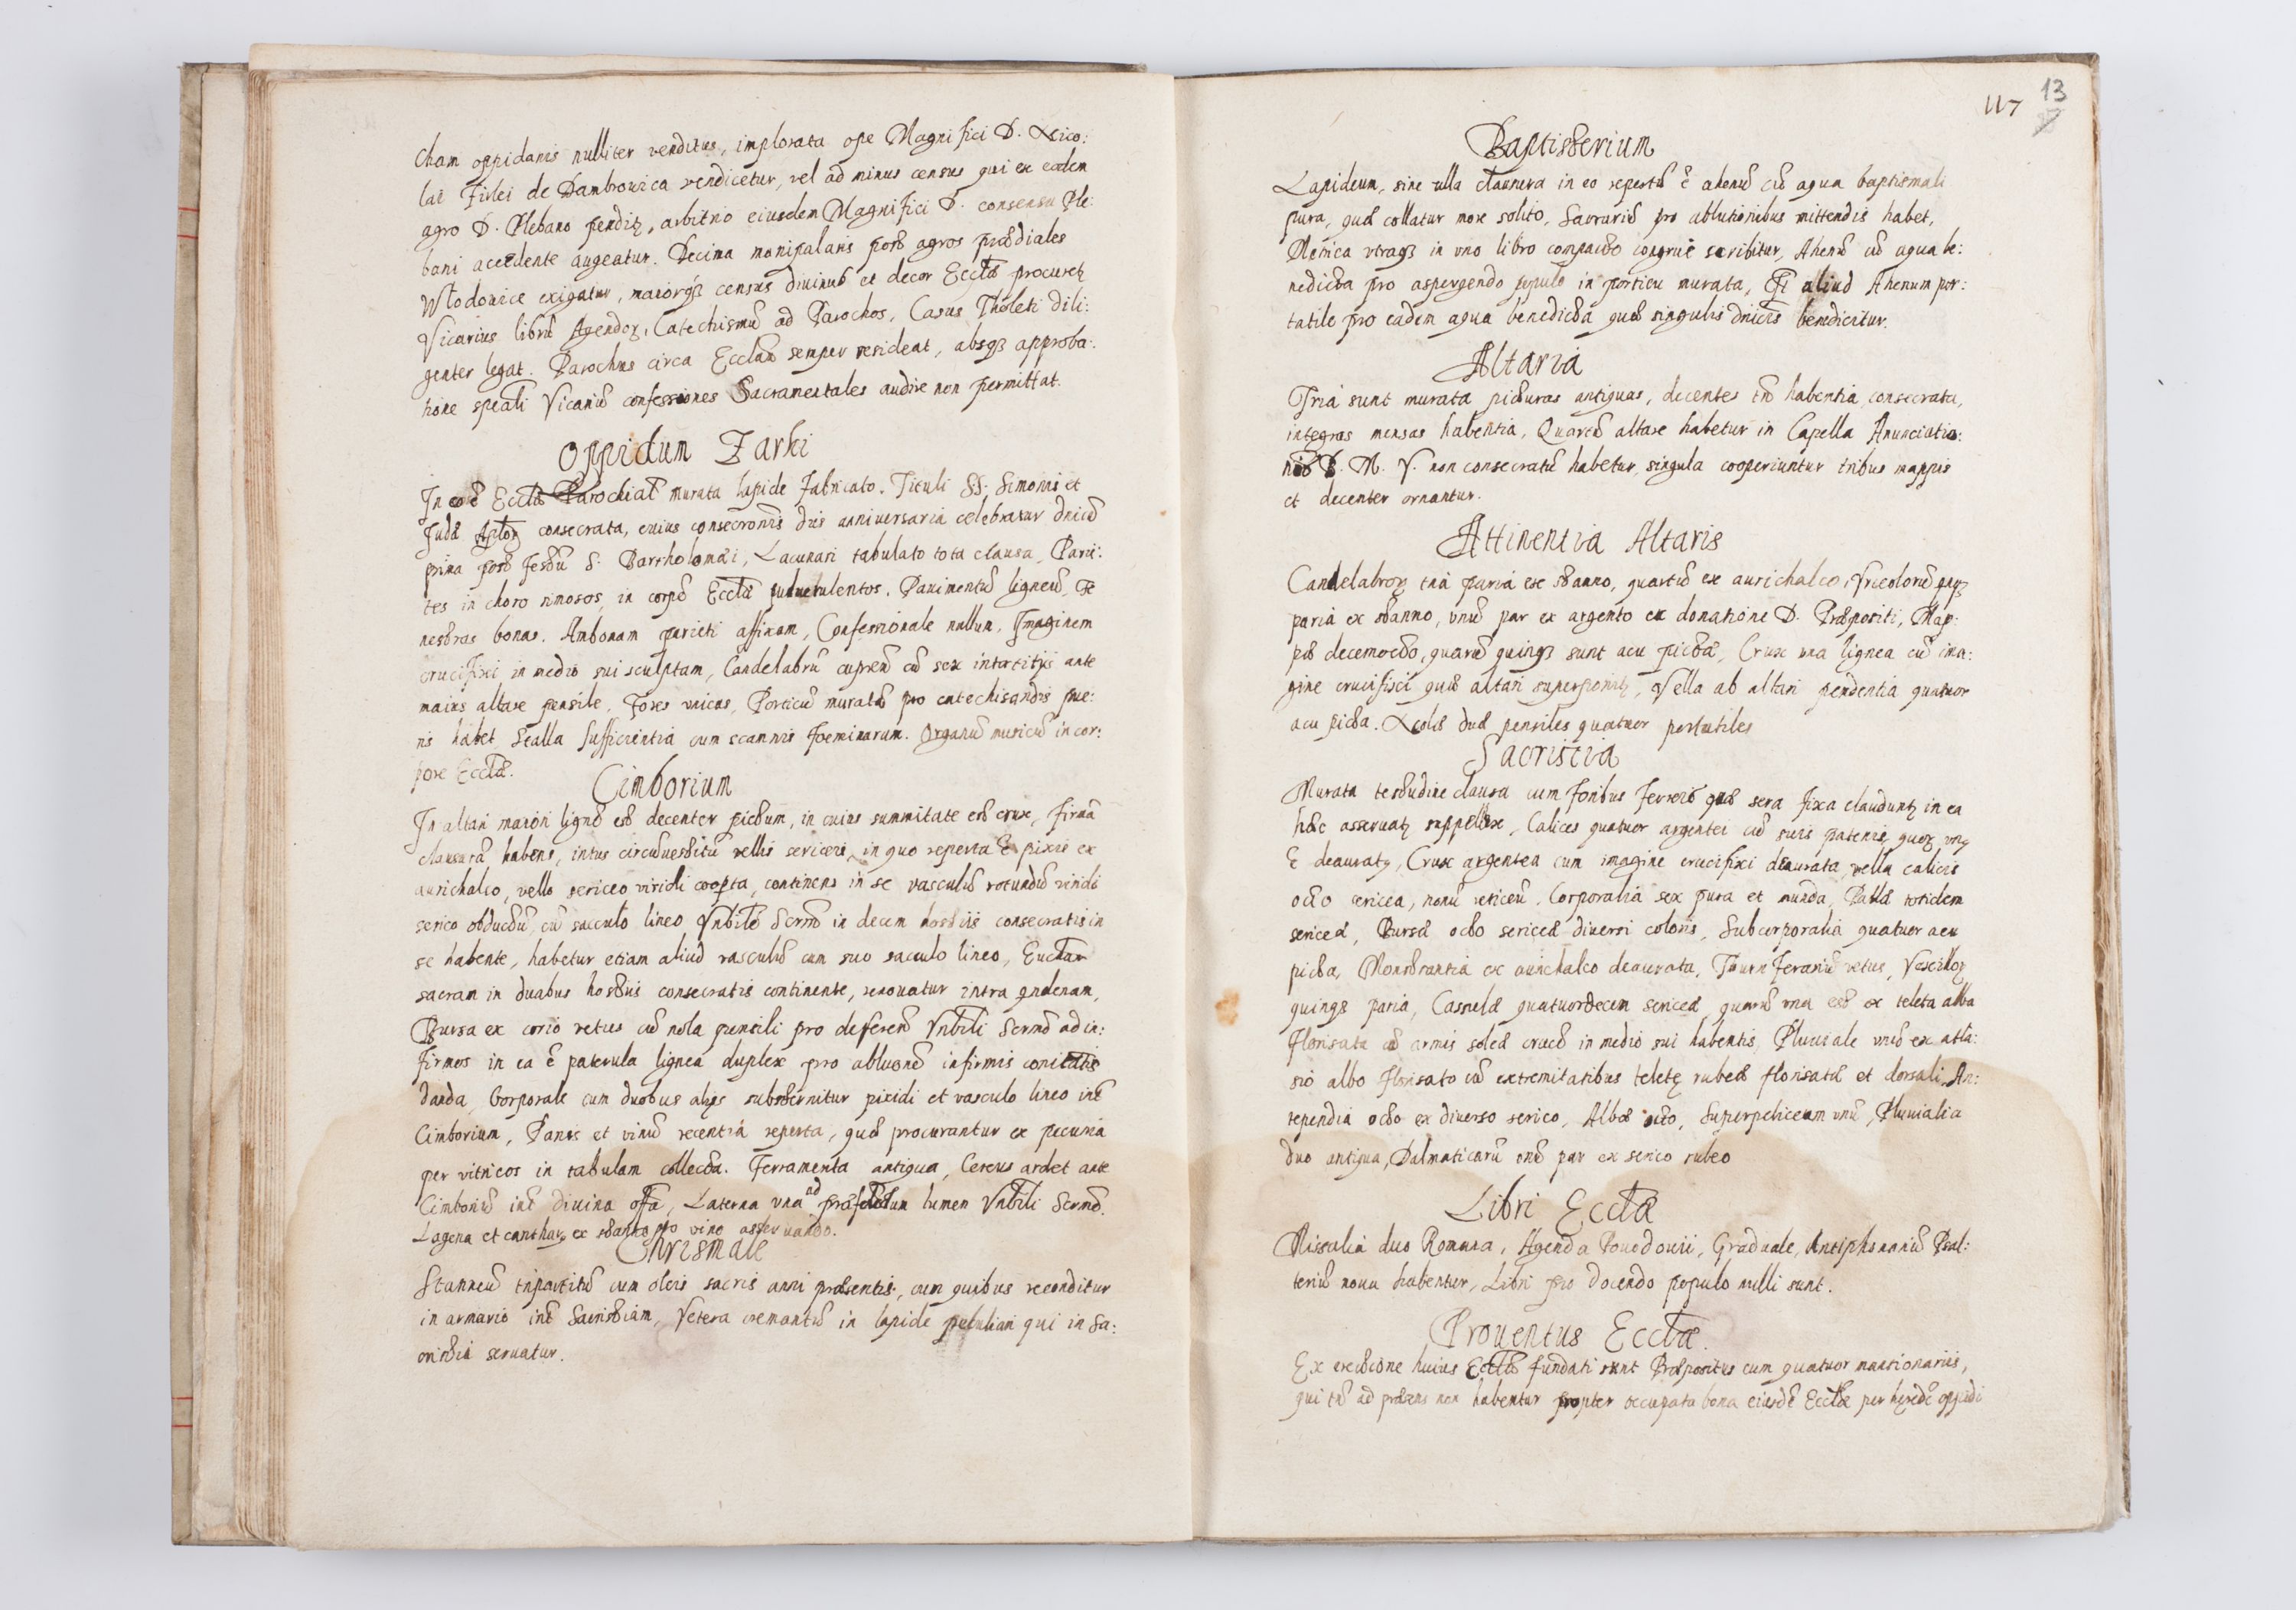 cham oppidanis nulliter venditus, implorata ope Magnifici D. Nico:
lai Firlei de Dambrowica vendicetur, vel ad minus census qui ex eodem
agro D. Plebano penditꝫ, arbitrio eiusdem Magnifici D. consensu Ple:
bani accedente augeatur. Decima manipularis post agros prædiales
Włodowice exigatur, maiorq́ꝫ census diuinus et decor Ecclæ procuretꝫ
Vicarius librū Agendoꝝ, Catechismū ad Parochos, Casus Tholeti dili:
genter legat. Parochus circa Ecclam semper resideat, absqꝫ approba:
tione speāli Vicariū confessiones Sacramentales audire non permittat.
Oppidum Zarki
In eo ē Eccla Parochial murata lapide fabricato. Tituli SS. Simonis et
Judæ Aplōꝝ consecrata, cuius consecronis dies anniuersaria celebratur dnicā
prima post festū S. Barrholomæi, Lacunari tabulato tota clausa, Parie:
tes in choro rimosos, in corpe Ecclæ puluerulentos. Pauimentū ligneū, Fe
nestras bonas. Ambonam parieti affixam, Confessionale nullum, Imaginem
crucifixi in medio sui sculptam, Candelabrū cupreū cū sex intortitijs ante
maius altare pensile, Fores unicas, Porticū muratā pro catechisandis pue:
ris habet, Sealla sufficientia cum scamnis foeminarum. Organū musicū in cor:
pore Ecclæ.
Cimborium
In altari maiori ligneū est decenter pictum, in cuius summitate est crux, firmā
clausurā habens, intus circūuestitū vellis sericeis, in quo reperta ē pixis ex
aurichalco, vello sericeo viridi coopta, continens in se vasculū rotundū viridi
serico obductū, cū sacculo lineo Vnbile Scrmō in decem hostiis consecratis in
se habente, habetur etiam aliud vasculū cum suo sacculo lineo, Euctiam
sacram in duabus hostiis consecratis continente, renouatur intra qndenam,
Bursa ex corio vetus cū nola pensili pro deferen Vnbili Scrmō ad in:
firmos in ea ē paterula lignea duplex pro abluonē infirmis conicatis
danda, Corporale cum duobus alijs substernitur pixidi et vasculo lineo inť
Cimborium, Panis et vinū recentia reperta, quæ procurantur ex pecunia
per vitricos in tabulam collecta. Ferramenta antiqua, Cereus ardet ante
Cimboriū inť diuina offa, Laterna vna ad præferendum lumen Vnbili Scrmō.
Lagena et cantharꝰ ex stanno pro vino asseruando.
Chrismale
Stanneū tripartitū cum oleis sacris anni præsentis, cum quibus reconditur
in armario inť Sacristiam, Vetera cremantū in lapide peculiari qui in Sa:
cristia seruatur.
117 13
Baptisterium
Lapideum, sine ulla clausura in eo repertū ē ahenū cū aqua baptismali
pura, quæ collatur more solito, Sacrariū pro ablutionibus mittendis habet,
Metrica vtraqꝫ in vno libro compacto congrue scribitur, Ahenū cū aqua be:
nedicta pro aspergendo populo in porticu murata, Et aliud Ahenum por:
tatile pro eadem aqua benedicta quæ singulis dnicis benedicitur.
Altaria
Tria sunt murata picturas antiquas, decentes tn̄ habentia, consecrata,
integras mensas habentia, Quartū altare habetur in Capella Anunciatio:
nis B. M. V. non consecratū habetur, singula cooperiuntur tribus mappis
et decenter ornantur.
Attinentia Altaris
Candelabroꝝ tria paria ex stanno, quartū ex aurichalco, Vrceolorū
paria ex stanno, vnū par ex argento ex donatione D. Præpositi, Map:
pæ decemocto, quarū quinqꝫ sunt acu pictæ, Crux vna lignea cū ima:
gine crucifixi quæ altari superponitꝫ, Vella ab altari pendentia quatuor
acu picta. Nolæ duæ pensiles quatuor portatiles
Sacristia
Murata testudine clausa cum foribus ferreis quæ sera fixa clauduntꝫ in ea
hæc asseruatꝫ suppellex, Calices quatuor argentei cū suis patenis, quoꝝ vnꝰ
ē deauratꝰ, Crux argentea cum imagine crucifixi deaurata, vella calicis
octo sericea, nonū reticeū, Corporalia sex pura et munda, Pallæ totidem
sericeæ, Bursæ octo sericeæ diuersi coloris, Subcorporalia quatuor acu
picta, Monstrantia ex aurichalco deaurata, Thurriferariū vetus, Vexilloꝝ
quinqꝫ paria, Casulæ quatuordecim sericeæ, quarū vna est ex teleta alba
florisata cū armis soleæ crucē in medio sui habentis, Pluuiale vnū ex atla:
sio albo florisato cū extremitatibus teletę rubeæ florisatæ et dorsali, An:
tependia octo ex diuerso serico, Albæ octo, Superpeliceum vnū, Pluuialia
duo antiqua, Dalmaticarū vnū par ex serico rubeo
Libri Ecclæ
Missalia duo Romana, Agenda Powodouii, Graduale, Antiphonariū Psal:
teriū noua habentur, Libri pro docendo populo nulli sunt.
Prouentus Ecclæ.
Ex erectione huius Ecclæ fundati sunt Præpositus cum quatuor mansionariis,
qui tn̄ ad præsens non habentur propter occupata bona eiusdē Ecclæ per heredē oppidi